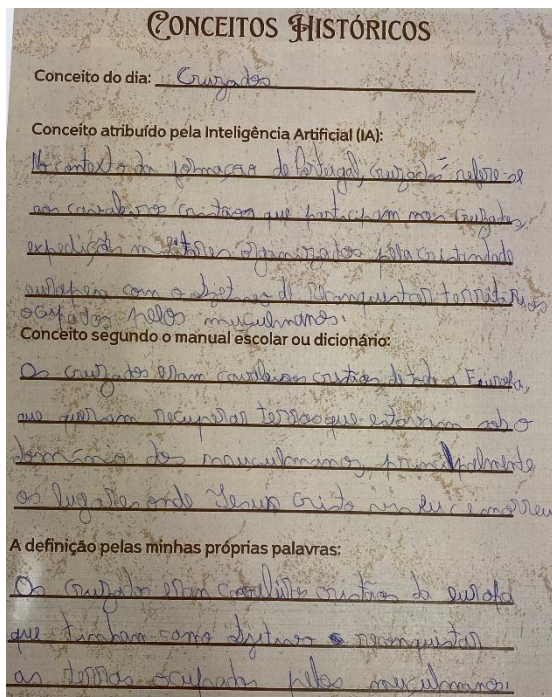 CONCEITOS HISTÓRICOS
Conceito do dia: Cruzados
Conceito atribuído pela Inteligência Artificial (IA):
No contexto da formação de Portugal, "cruzados" refere-se
aos cavaleiros cristãos que participam nas Cruzadas,
expedições militares organizadas pela cristandade
europeia com o objetivo de reconquistar territórios
ocupados pelos muçulmanos.
Conceito segundo o manual escolar ou dicionário:
Os cruzados eram cavaleiros cristãos de toda a Europa,
que queriam recuperar terras que estavam sob o
domínio dos muçulmanos, principalmente
os lugares onde Jesus Cristo viveu e morreu
A definição pelas minhas próprias palavras:
Os cruzados eram cavaleiros cristãos da europa
que tinham como objetivo reconquistar
as terras ocupadas pelos muçulmanos.